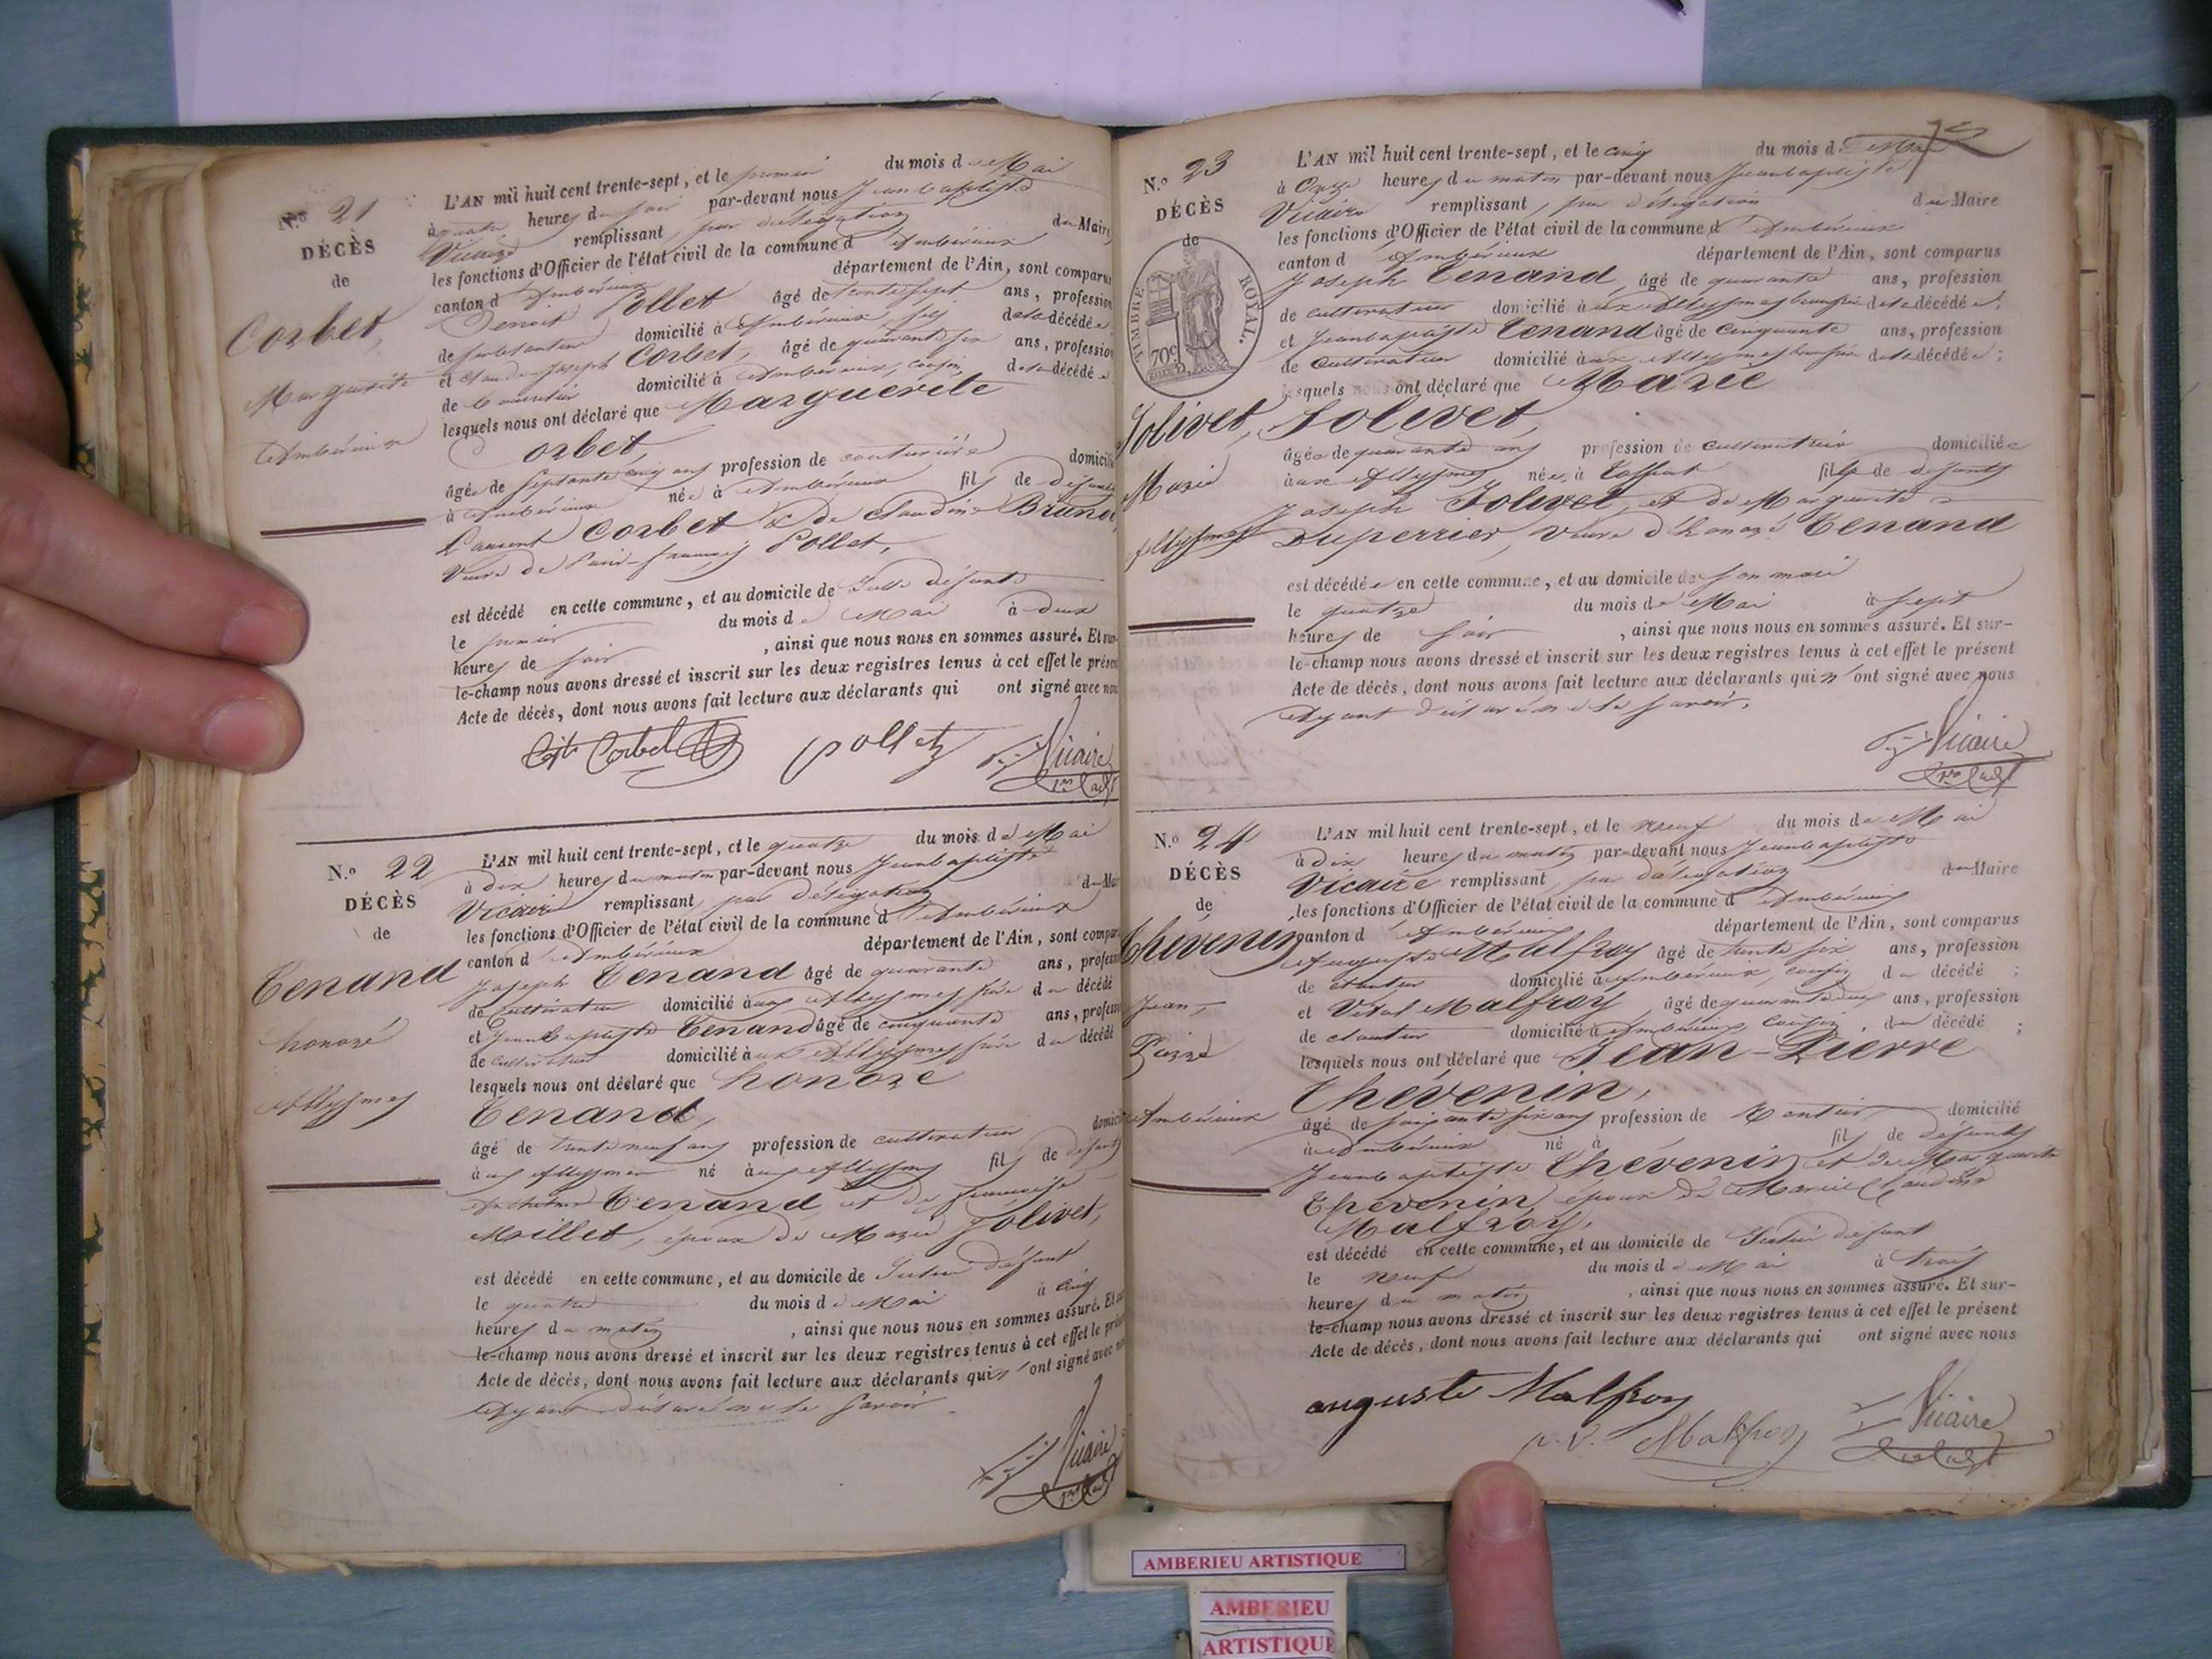 N.o 21
DÉCÈS
de
Corbet,
Marguerite
Ambérieux
L'AN mil huit cent trente-sept, et le premier du mois de Mai
à quatre heures du soir par-devant nous Jeanbaptiste
Vicaire remplissant par délégation du Maire
les fonctions d'Officier de l'état civil de la commune d'Ambérieux
canton d'Ambérieux département de l'Ain, sont comparus
Benoit Pollet âgé de trente sept ans, profession
de ferblantier domicilié à Ambérieux fils de la décédée
et Claude-Joseph Corbet, âgé de quarante six ans, profession
de domicilié à Ambérieux, cousin de la décédée
lesquels nous ont déclaré que Marguerite
Corbet,
âgée de septante cinq ans profession de couturière domicilié
à Ambérieux née à Ambérieux fille de défunts
Laurent Corbet & de Claudine Brunet
Veuve de Pollet,
est décédé en cette commune, et au domicile de défunte
le premier du mois de Mai à deux
heures de soir, ainsi que nous nous en sommes assuré. Et sur-
le-champ nous avons dressé et inscrit sur les deux registres tenus à cet effet le présent
Acte de décès, dont nous avons fait lecture aux déclarants qui ont signé avec nous
Corbet pollet Vicaire
N.o 22
DÉCÈS
de
Tenand
honoré
Allymes
L'AN mil huit cent trente-sept, et le quatre du mois de Mai
à dix heures du matin par-devant nous Jeanbaptiste
Vicaire remplissant par délégation du Mai
les fonctions d'Officier de l'état civil de la commune d'Ambérieux
canton d'Ambérieux département de l'Ain, sont compar
Joseph Tenand âgé de quarante ans, profess
de cultivateur domicilié aux Allymes frère du décédé
et Jeanbaptiste Tenand âgé de cinquante ans, profess
de cultivateur domicilié aux Allymes frère du décédé
lesquels nous ont déclaré que honoré
Tenand,
âgé de trente neuf ans profession de cultivateur domici
aux Allymes né aux Allymes fils de défunts
Tenand et de françoise
Millet, époux de Marie Jolivet,
est décédé en cette commune, et au domicile de défunt
le quatre du mois de Mai à cinq
heures du matin, ainsi que nous nous en sommes assuré. Et
le-champ nous avons dressé et inscrit sur les deux registres tenus à cet effet le pré
Acte de décès, dont nous avons fait lecture aux déclarants qui n'ont signé avec
ayant déclaré ne le savoir.
Vicaire
N.o 23
DÉCÈS
de
TIMBRE ROYAL
70c
Jolivet,
Marie
Allymes
L'AN mil huit cent trente-sept, et le cinq du mois de Mai
à Onze heures du matin par-devant nous Jeanbaptiste
Vicaire remplissant, par délégation du Maire
les fonctions d'Officier de l'état civil de la commune d'Ambérieux
canton d'Ambérieux département de l'Ain, sont comparus
Joseph Tenand, âgé de quarante ans, profession
de cultivateur domicilié aux Allymes beaufrère de la décédée;
et Jeanbaptiste Tenand âgé de cinquante ans, profession
de Cultivateur domicilié aux Allymes beaufrère de la décédée;
lesquels nous ont déclaré que Marie
Jolivet,
âgée de quarante ans profession de cultivatrice domiciliée
aux Allymes née à fille de défunts
Joseph Jolivet, et de Marguerite
Duperrier, Veuve d'honoré Tenand
est décédée en cette commune, et au domicile de son mari
le quatre du mois de Mai à sept
heures de soir, ainsi que nous nous en sommes assuré. Et sur-
le-champ nous avons dressé et inscrit sur les deux registres tenus à cet effet le présent
Acte de décès, dont nous avons fait lecture aux déclarants qui n'ont signé avec nous
ayant déclaré ne le savoir.
Vicaire
N.o 24
DÉCÈS
de
Thévenin
Jean-
Pierre
Ambérieux
L'AN mil huit cent trente-sept, et le neuf du mois de Mai
à dix heures du matin par-devant nous Jeanbaptiste
Vicaire remplissant par délégation du Maire
les fonctions d'Officier de l'état civil de la commune d'Ambérieux
canton d'Ambérieux département de l'Ain, sont comparus
Auguste Malfroy âgé de trente six ans, profession
de domicilié à Ambérieux, cousin du décédé;
et Vital Malfroy, âgé de quarante deux ans, profession
de domicilié à Ambérieux cousin, du décédé;
lesquels nous ont déclaré que Jean-Pierre
Thévenin,
âgé de soixante six ans profession de Rentier, domicilié
à Ambérieux né à fils de défunts
Jeanbaptiste Thévenin et de Marguerite
Thévenin époux de Marie Claudine
Malfroy,
est décédé en cette commune, et au domicile de défunt
le neuf du mois de Mai à trois
heures du matin, ainsi que nous nous en sommes assuré. Et sur-
le-champ nous avons dressé et inscrit sur les deux registres tenus à cet effet le présent
Acte de décès, dont nous avons fait lecture aux déclarants qui ont signé avec nous
auguste Malfroy
Malfroy Vicaire
AMBERIEU ARTISTIQUE
AMBERIEU
ARTISTIQUE